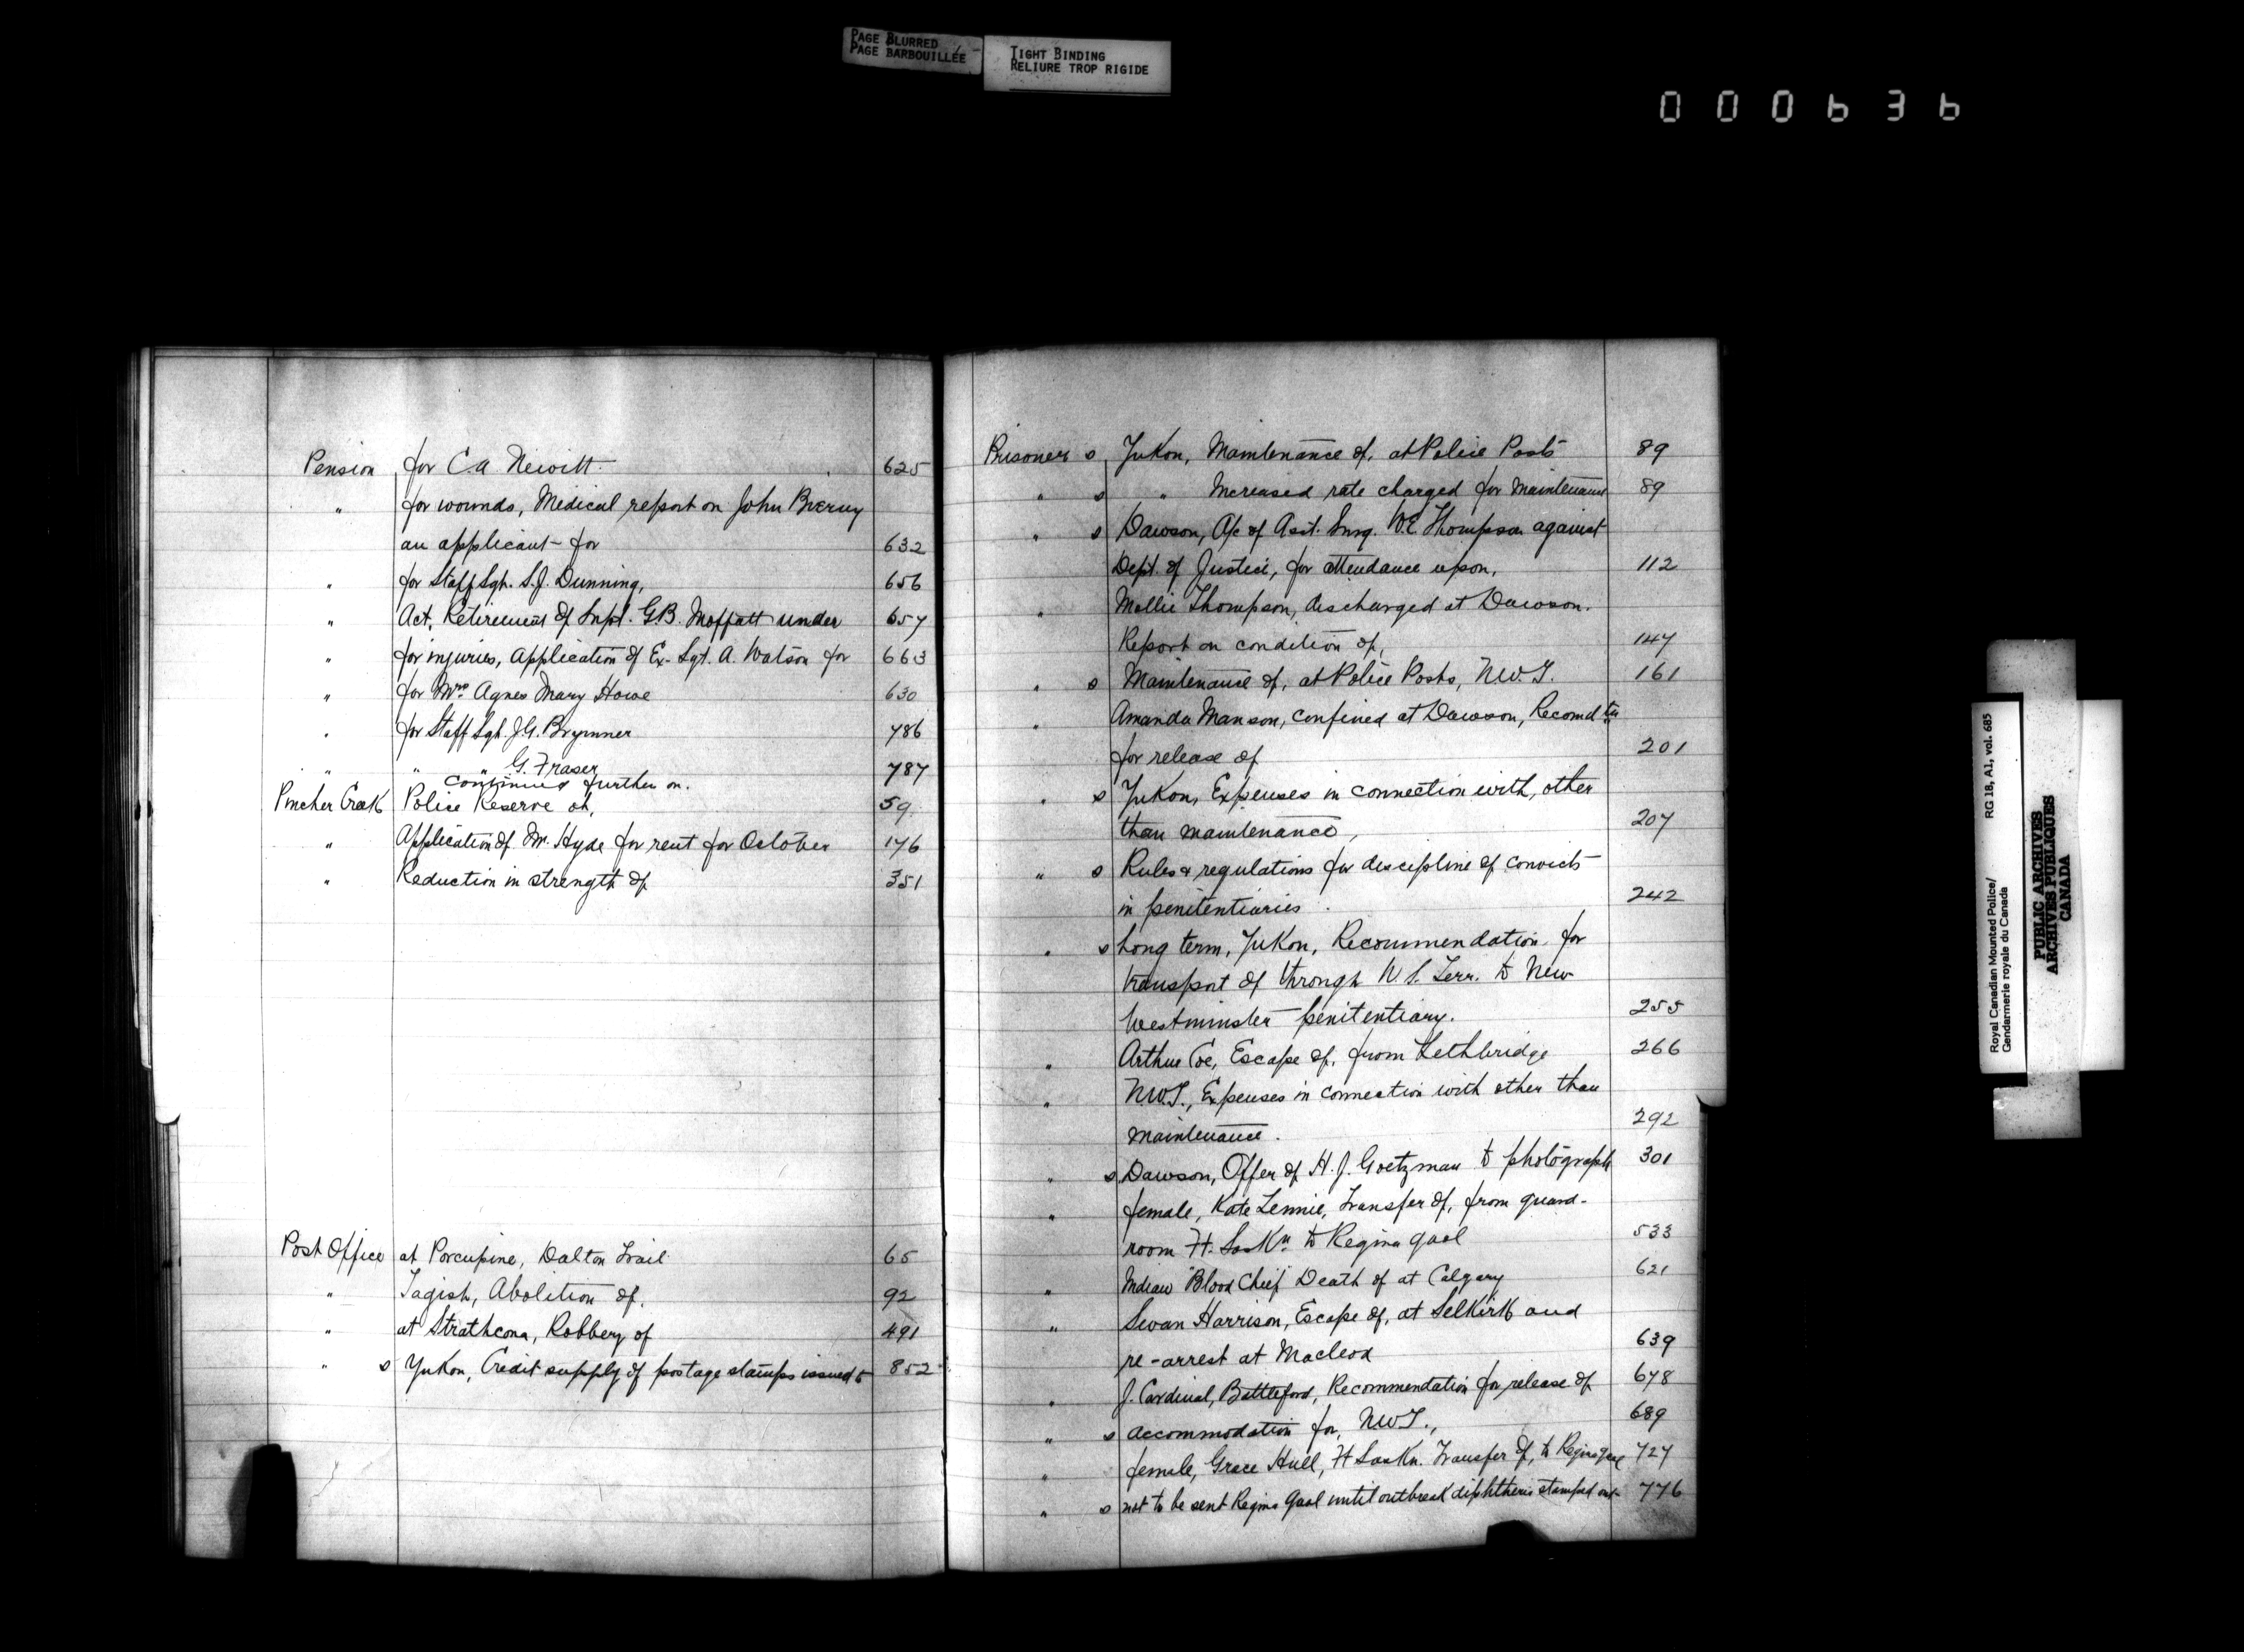 PAGE BLURRED
PAGE BARBOUILLÉE
TIGHT BINDING
RELIURE TROP RIGIDE
000636
Pension for C.A. Newitt 625
" for wounds, Medical report on John
an applicant for 632
" for Staff Sgt. S.J. Dunning, 656
" Act, Retirement of Supt. G.B. Moffatt under 657
" for injuries, Application of Ex-Sgt. A. Watson for 663
" for Mrs Agnes Mary Howe 630
" for Staff Sgt. J.G. Brymner 786
" " " G. Fraser 787
continued further on.
Pincher Creek Police Reserve at, 59
" Application of Mr. Hyde for rent for October 176
" Reduction in strength of 351
Post Office at Porcupine, Dalton Trail 65
" Tagish, Abolition of, 92
" at Strathcona, Robbery of 491
" s Yukon, Credit supply of postage stamps issued to 852
Prisoner s Yukon, Maintenance of, at Police Posts 89
" s " Increased rate charged for maintenance 89
" s Dawson, A/c of Asst. Surg. W.E. Thompson against
Dept. of Justice, for attendance upon, 112
" Mollie Thompson, discharged at Dawson.
Report on condition of, 147
" s Maintenance of, at Police Posts, N.W.T. 161
" Amanda Manson, confined at Dawson, Recomdtn
for release of 201
" s Yukon, Expenses in connection with, other
than maintenance, 207
" s Rules & regulations for discipline of convicts
in penitentiaries. 242
" s Long term, Yukon, Recommendation for
transport of through U.S. Terr. to New
Westminster penitentiary. 255
" Arthur Coe, Escape of, from Lethbridge 266
" N.W.T., Expenses in connection with other than
maintenance. 292
" s Dawson, Offer of H.J. Goetzman to photograph 301
" female, Kate Lennie, Transfer of, from guard-
room Ft. Saskn to Regina gaol 533
" Indian "Blood Chief" Death of at Calgary 621
" Swan Harrison, Escape of, at Selkirk and
re-arrest at Macleod 639
" J. Cardinal, Battleford, Recommendation for release of 678
" s accommodation for, N.W.T., 689
" female, Grace Hull, Ft Saskn. Transfer of, to Regina gaol 727
" s not to be sent Regina gaol until outbreak diphtheria stamped out 776
Royal Canadian Mounted Police/ RG 18, A1, vol. 685
Gendarmerie royale du Canada
PUBLIC ARCHIVES
ARCHIVES PUBLIQUES
CANADA